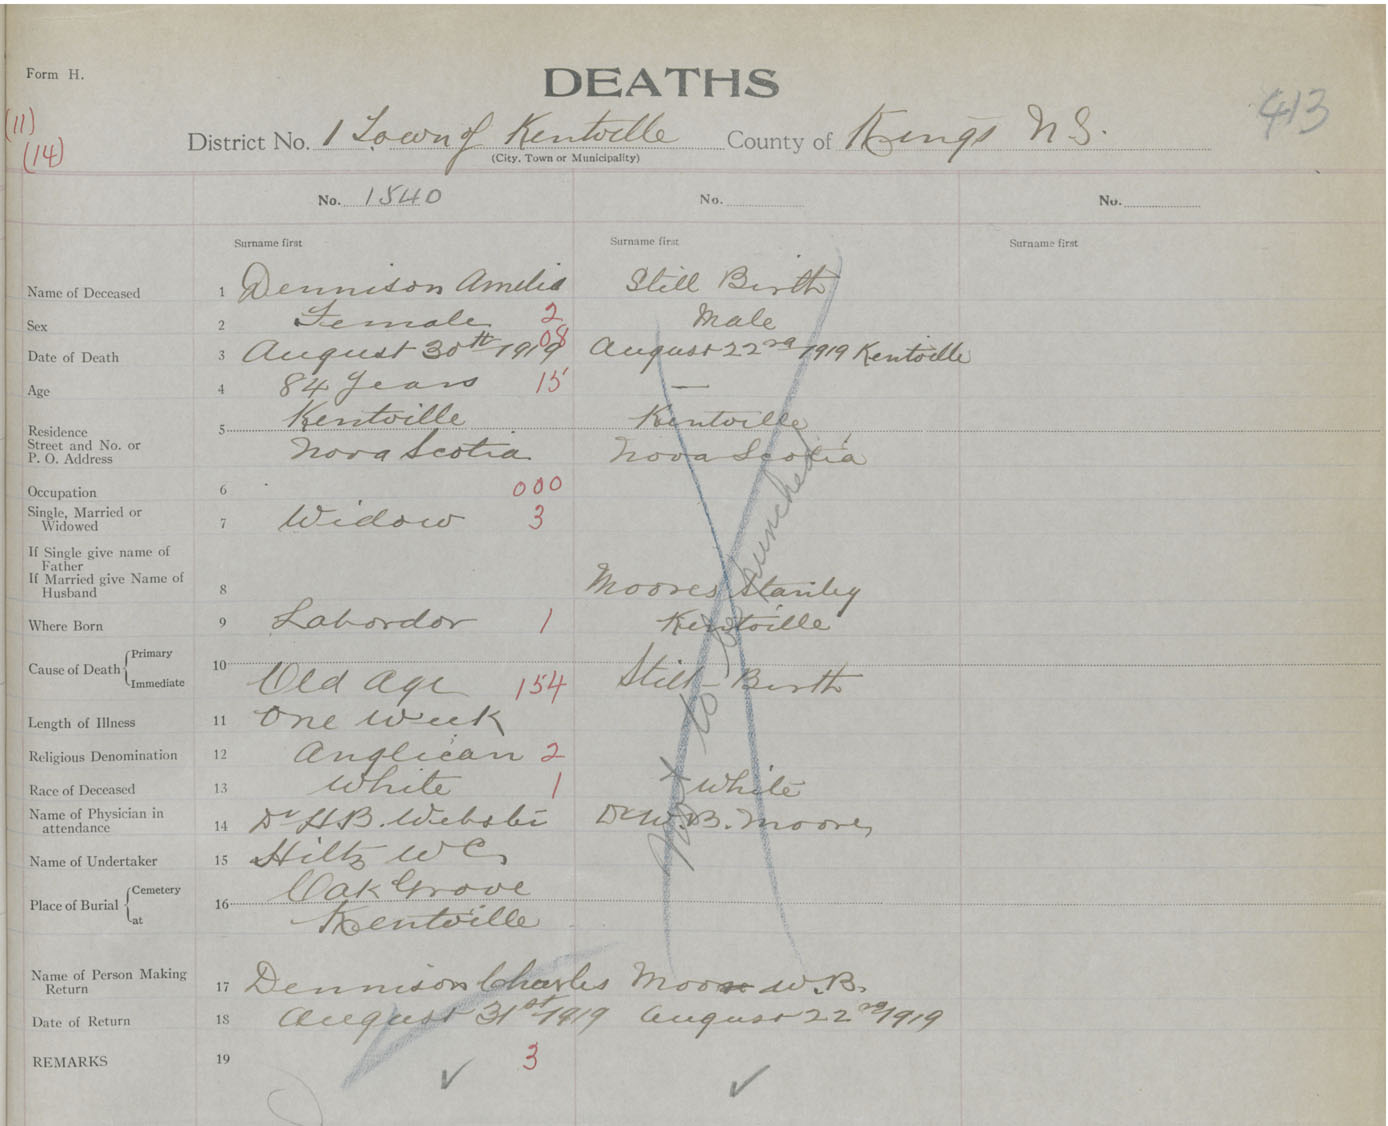 Form H.
DEATHS
413
(11)
(14)
District No. 1 Town of Kentville County of Kings N.S.
(City, Town or Municipality)
No. 1540 No. No.
Surname first Surname first Surname first
Name of Deceased 1 Dennison Amelia Still Birth
Sex 2 Female 2 Male
Date of Death 3 August 30th 1919 08 August 22nd 1919 Kentville
Age 4 84 years 15 —
Residence 5 Kentville Kentville
Street and No. or
P. O. Address Nova Scotia Nova Scotia
Occupation 6 000
Single, Married or
Widowed 7 Widow 3
If Single give name of
Father
If Married give Name of
Husband 8 Moores Stanley
Where Born 9 Labordor 1 Kentville
Cause of Death Primary
Immediate 10 Old Age 154 Still-Birth
Length of Illness 11 One Week
Religious Denomination 12 Anglican 2
Race of Deceased 13 White 1 White
Name of Physician in
attendance 14 Dr H.B. Webster Dr W.B. Moore
Name of Undertaker 15 Hiltz W C.
Place of Burial Cemetery
at 16 Oak Grove
Kentville
Not to be punched
Name of Person Making
Return 17 Dennison Charles Moore W.B.
Date of Return 18 August 31st 1919 August 22nd 1919
REMARKS 19 3